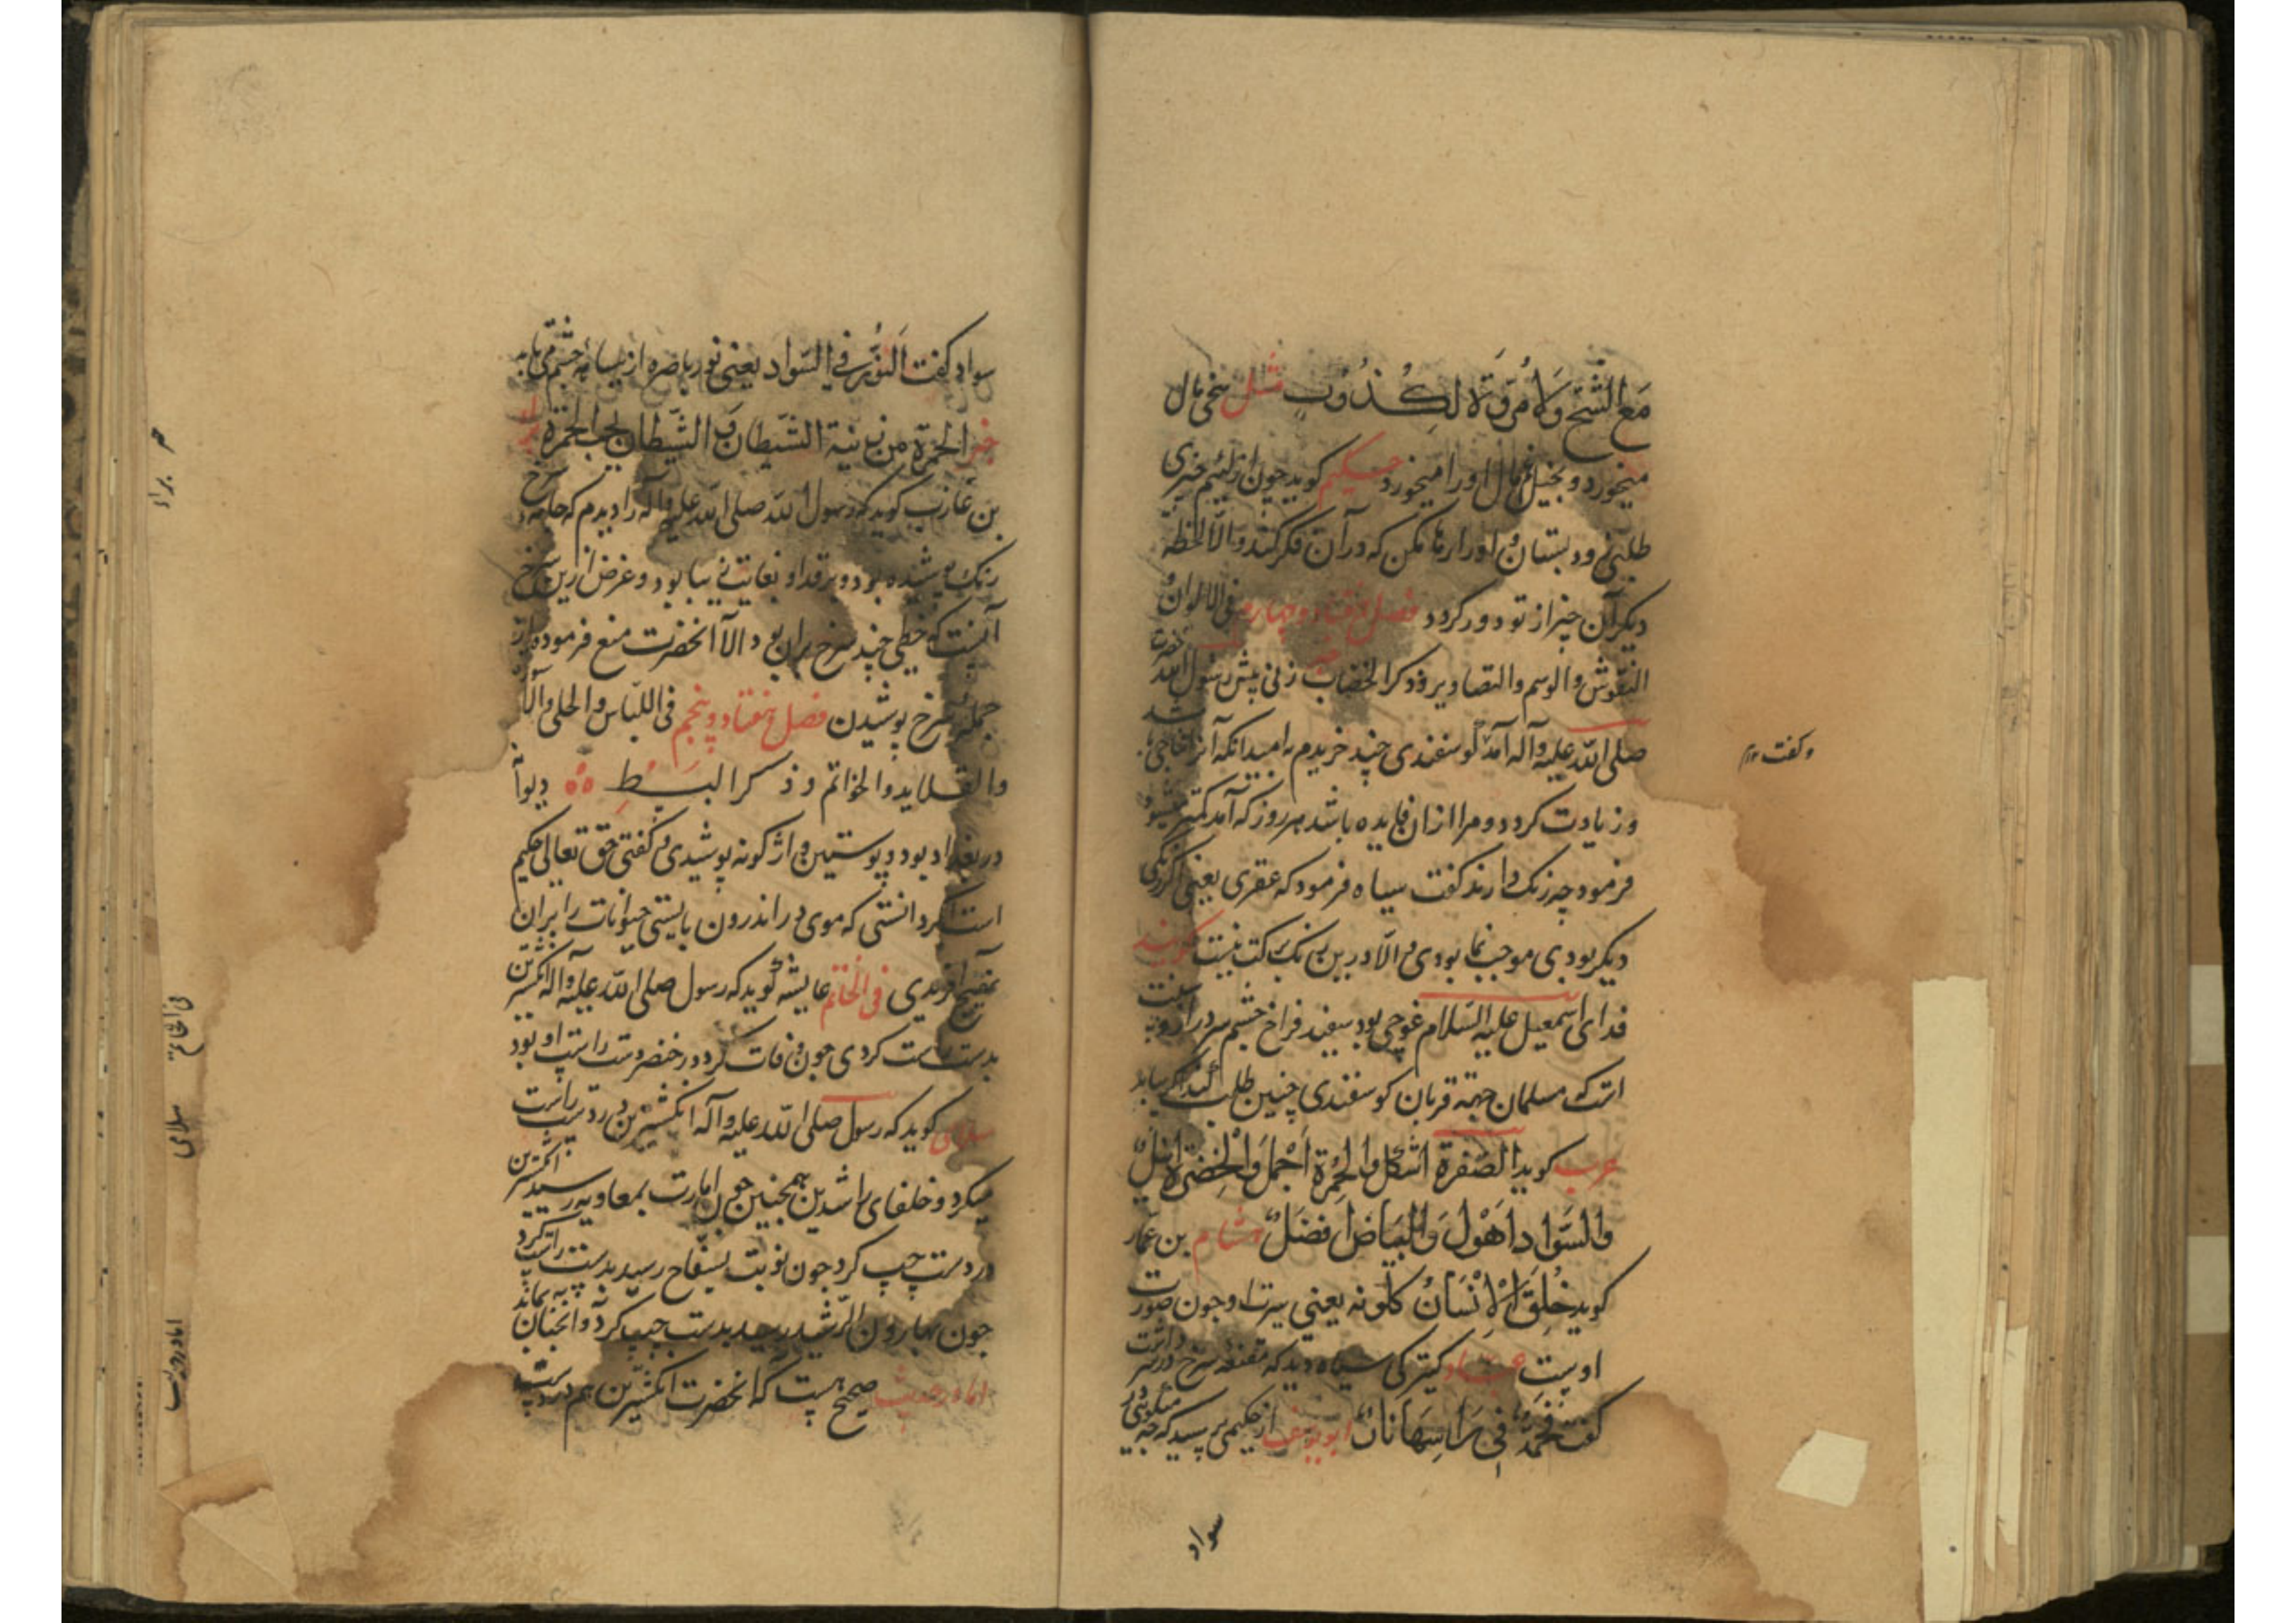 مَعَ الشُّحِّ وَلَا مُرُوَّةَ لِكَذُوبٍ مثل سخی مال
میخورد و بخیل را مال او را میخورد حکیم کوید چون از لئیم چیزی
طلبی و نستاند او را رها مکن که در آن فکر کند و الا لحظه
دیکر آن چیز از تو دور کردد فصل هفتاد و چهارم فی الالوان و
النقوش والوسم والتصاویر وذکر الخضاب زنی پیش حضرت رسول الله
صلی الله علیه وآله آمد کوسفندی چند خریدم بامید انکه آنرا نتاجی باشد
و زیادت کردد و مرا ازان فایده باشد هر روز که آمد کمتر میشود
فرمود چه رنک دارند کفت سیاه فرمود که عفری یعنی اکر رنکی
دیکر بودی موجب نما بودی و الا درین رنک برکت نیست کویند
فدای اسمعیل علیه السلام غوچی بود سفید فراخ چشم سر دراز و سنت
است که مسلمان جهة قربان کوسفندی چنین طلب کند اکر بیابد
عرب کوید الصفرة اشکل والحمرة اجمل والخضرة انبل
والسواد اهول والبیاض افضل هشام بن عمار
کوید خلق الانسان کلونه یعنی سیرت او چون صورت
اوست عباد کنیزکی سیاه دید که مقنعه سرخ در سر داشت
کفت فحمة فی راسها نار ابو یوسف از حکیمی پرسید که چه میکوئی در
سواد
و کفت
سواد کفت النور فی السواد یعنی نور باصره از سیاهی چشم می تابد
خبر الحمرة من زینة الشیطان و الشیطان یحب الحمرة براء
بن عازب کوید که رسول الله صلی الله علیه وآله را دیدم که جامه سرخ
رنک پوشیده بود و بر قد او بغایت زیبا بود و غرض ازین سرخ
آنست که خطی چند سرخ بران بود الا آنحضرت منع فرموده از
جمله سرخ پوشیدن فصل هفتاد و پنجم فی اللباس والحلی والآ
والقلاید والخواتم وذکر البسط دیوانه
در بغداد بود و پوستین واژکونه پوشیدی و کفتی حق تعالی حکیم
است اکر دانستی که موی در اندرون بایستی حیوانات را بران
آفریدی فی الخاتم عایشه کوید که رسول صلی الله علیه وآله انکشترین
بدست راست کردی چون وفات کرد در خنصر دست راست او بود
سلامی کوید که رسول صلی الله علیه وآله انکشترین در دست راست
میکرد و خلفای راشدین همچنین چون امارت بمعاویه رسید انکشترین
در دست چپ کرد چون نوبت بسفاح رسید بدست راست کرد
چون بهارون الرشید رسید بدست چپ کرد و آنچنان بماند
اما در حدیث صحیح هست که آنحضرت انکشترین هم در دست چپ
براء
فی الخاتم
سلامی
اما در حدیث